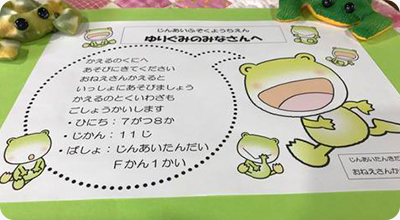 じんあいふぞくようちえん
ゆりぐみのみなさんへ
かえるのくにへ
あそびにきてください
おねえさんかえると
いっしょにあそびましょう
かえるのとくいわざも
ごしょうかいします
・ひにち：７がつ８か
・じかん：１１じ
・ばしょ：じんあいたんだい
Ｆかん１かい
じんあいたんきだ
おねえさんか